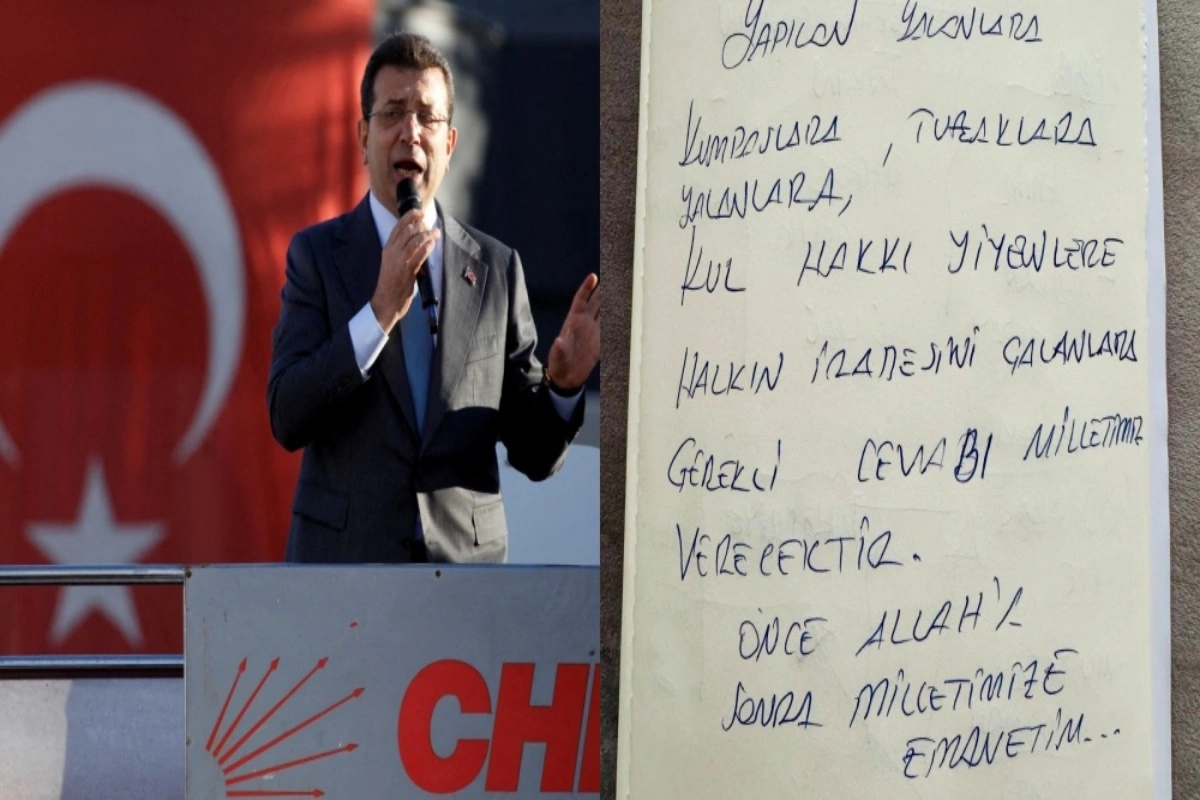 CH
YAPILAN YALANLARA
KUMPASLARA, TUZAKLARA
YALANLARA,
KUL HAKKI YİYENLERE
HALKIN İRADESİNİ ÇALANLARA
GEREKLİ CEVABI MİLLETİMİZ
VERECEKTİR.
ÖNCE ALLAH'A
SONRA MİLLETİMİZE
EMANETİM...